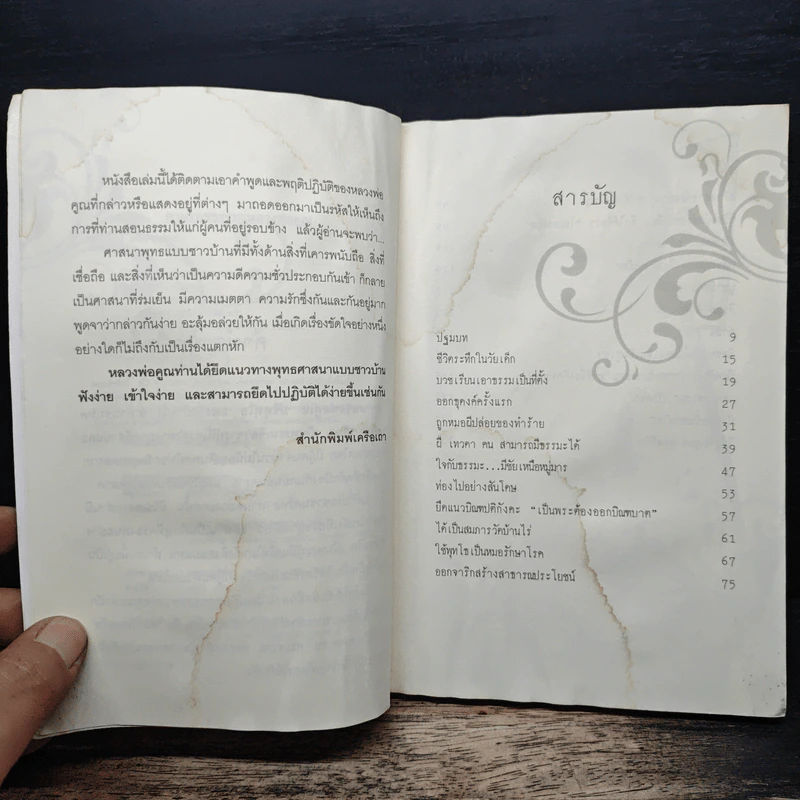 หนังสือเล่มนี้ได้ติดตามเอาคำพูดและพฤติปฏิบัติของหลวงพ่อ
คูณที่กล่าวหรือแสดงอยู่ที่ต่างๆ มาถอดออกมาเป็นรหัสให้เห็นถึง
การที่ท่านสอนธรรมให้แก่ผู้คนที่อยู่รอบข้าง แล้วผู้อ่านจะพบว่า...
ศาสนาพุทธแบบชาวบ้านที่มีทั้งด้านสิ่งที่เคารพนับถือ สิ่งที่
เชื่อถือ และสิ่งที่เห็นว่าเป็นความดีความชั่วประกอบกันเข้า ก็กลาย
เป็นศาสนาที่ร่มเย็น มีความเมตตา ความรักซึ่งกันและกันอยู่มาก
พูดจาว่ากล่าวกันง่าย อะลุ้มอล่วยให้กัน เมื่อเกิดเรื่องขัดใจอย่างหนึ่ง
อย่างใดก็ไม่ถึงกับเป็นเรื่องแตกหัก
หลวงพ่อคูณท่านได้ยึดแนวทางพุทธศาสนาแบบชาวบ้าน
ฟังง่าย เข้าใจง่าย และสามารถยึดไปปฏิบัติได้ง่ายขึ้นเช่นกัน
สำนักพิมพ์เครือเถา
สารบัญ
ปฐมบท 9
ชีวิตระทึกในวัยเด็ก 15
บวชเรียนเอาธรรมเป็นที่ตั้ง 19
ออกธุดงค์ครั้งแรก 27
ถูกหมอผีปล่อยของทำร้าย 31
ผี เทวดา คน สามารถมีธรรมะได้ 39
ใจกับธรรมะ...มีชัยเหนือหมู่มาร 47
ท่องไปอย่างสันโดษ 53
ยึดแนวบิณฑปติกังคะ "เป็นพระต้องออกบิณฑบาต" 57
ได้เป็นสมภารวัดบ้านไร่ 61
ใช้พุทโธเป็นหมอรักษาโรค 67
ออกจาริกสร้างสาธารณประโยชน์ 75